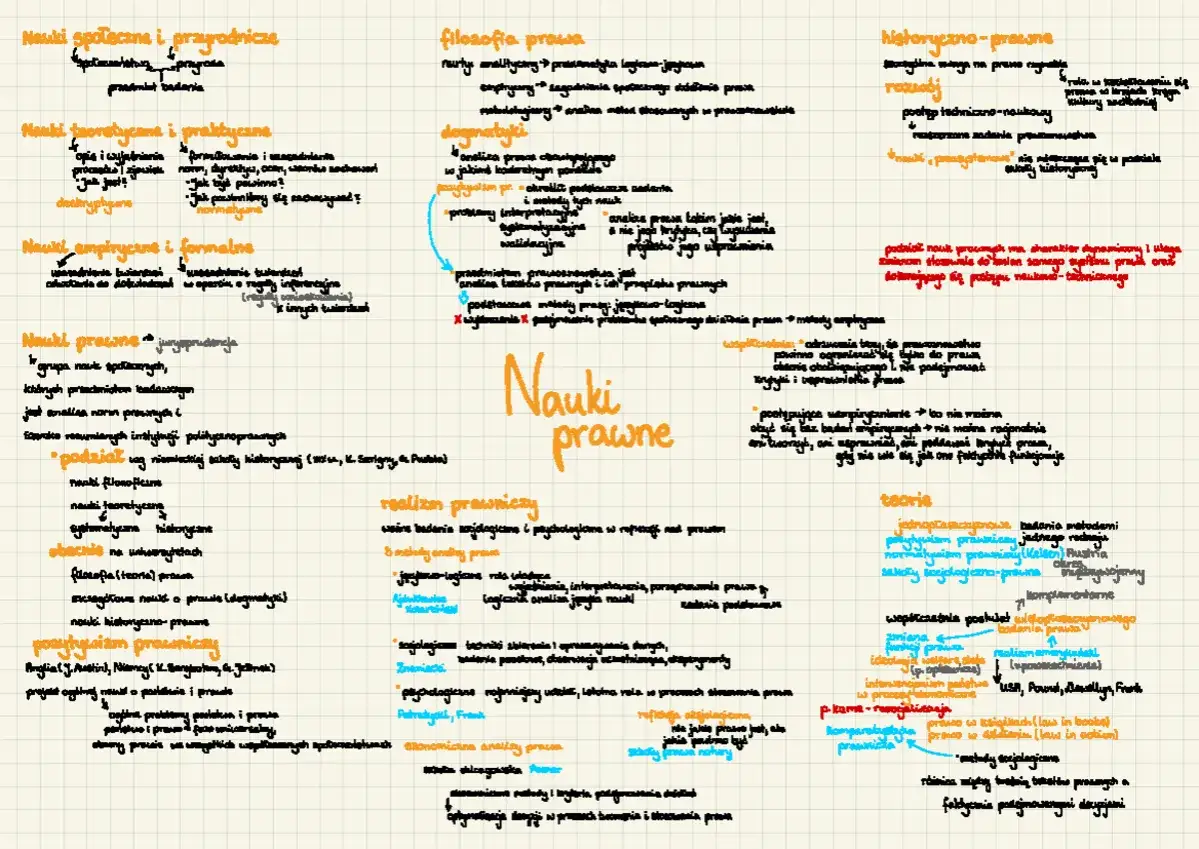 Nauki społeczne i przyrodnicze
społeczeństwo przyroda
przedmiot badania
Nauki teoretyczne i praktyczne
opis i wyjaśnianie
procesów i zjawisk
"Jak jest?"
deskryptywne
formułowanie i uzasadnianie
norm, dyrektyw, ocen, wzorów zachowań
"Jak być powinno?
"Jak powinniśmy się zachowywać?
normatywne
Nauki empiryczne i formalne
uzasadnienie twierdzeń
odwołanie do doświadczeń
uzasadnienie twierdzeń
w oparciu o reguły inferencyjne
(reguły wnioskowania)
z innych twierdzeń
Nauki prawne → jurysprudencja
grupa nauk społecznych,
których przedmiotem badawczym
jest analiza norm prawnych i
szeroko rozumianych instytucji politycznoprawnych
podział wg niemieckiej szkoły historycznej (XIXw., K. Savigny, G. Puchta)
nauki filozoficzne
nauki teoretyczne
systematyczne historyczne
obecnie na uniwersytetach
filozofia (teoria) prawa
szczegółowe nauki o prawie (dogmatyki)
nauki historyczno-prawne
pozytywizm prawniczy
Anglia (J. Austin), Niemcy (K. Bergbohm, G. Jellinek)
projekt ogólnej nauki o państwie i prawie
ogólne problemy państwa i prawa
państwo i prawo = fakt uniwersalny,
obecny prawie we wszystkich współczesnych społeczeństwach
filozofia prawa
nurty: analityczny → problematyka logiczno-językowa
empiryczny → zagadnienia społecznego działania prawa
metodologiczny → analiza metod stosowanych w prawoznawstwie
dogmatyki
analiza prawa obowiązującego
w jakimś konkretnym porządku
pozytywizm pr. • określił podstawowe zadania
i metody tych nauk
• problemy interpretacyjne
systematyzacyjne
walidacyjne
• analiza prawa takim jakie jest,
a nie jego krytyka, czy wysuwanie
projektów jego usprawnienia
• przedmiotem prawoznawstwa jest
analiza tekstów prawnych i ich przepisów prawnych
podstawowe metody pracy: językowo-logiczne
X wykluczenie X podejmowanie problemów społecznego działania prawa → metody empiryczne
Nauki
prawne
współcześnie: • odrzucenie tezy, że prawoznawstwo
powinno ograniczać się tylko do prawa
obecnie obowiązującego i nie podejmować
krytyki i usprawnienia prawa
• postępujące uempirycznianie → bo nie można
obyć się bez badań empirycznych → nie można racjonalnie
ani tworzyć, ani usprawniać, ani poddawać krytyce prawa,
gdy nie wie się jak ono faktycznie funkcjonuje
realizm prawniczy
ważne badania socjologiczne i psychologiczne w refleksji nad prawem
3 metody analizy prawa
• językowo-logiczne rola wiodąca
wyjaśnianie, interpretowanie, porządkowanie prawa
(logiczna analiza języka nauki) zadania podstawowe
Ajdukiewicz
Kotarbiński
• socjologiczne techniki zbierania i opracowywania danych,
badania panelowe, obserwacja uczestnicząca, eksperymenty
Znaniecki
• psychologiczne najmniejszy udział, istotna rola w procesach stosowania prawa
Petrażycki, Freud
refleksja aksjologiczna
nie jakie prawo jest, ale
jakie powinno być
szkoły prawa natury
ekonomiczna analiza prawa
szkoła chicagowska Posner
ekonomiczne metody i kryteria podejmowania działań
optymalizacja decyzji w procesach tworzenia i stosowania prawa
historyczno-prawne
szczególna uwaga na prawo rzymskie
rola w kształtowaniu się
prawa w krajach kręgu
kultury zachodniej
rozwój
postęp techniczno-naukowy
rozszerzone zadania prawoznawstwa
nauki „pozasystemowe" nie mieszczące się w podziale
szkoły historycznej
podział nauk prawnych ma charakter dynamiczny i ulega
zmianom stosownie do zmian samego systemu prawa oraz
dokonującego się postępu naukowo-technicznego
teorie
jednopłaszczyznowe badania metodami
jednego rodzaju
pozytywizm prawniczy
normatywizm prawniczy (Kelsen) Austria
okres
międzywojenny
szkoły socjologiczno-prawne
komplementarne
współcześnie postulat wielopłaszczyznowego
badania prawa
zmiana
funkcji prawa
realizm amerykański
(upowszechnienie)
ideologia welfare state
(p. opiekuńcze)
interwencjonizm państwa
w procesy ekonomiczne
USA, Pound, Llewellyn, Frank
p. karne - resocjalizacja
komparatystyka
prawnicza
prawo w książkach (law in books)
prawo w działaniu (law in action)
• metody socjologiczne
różnica między treścią tekstów prawnych a
faktycznie podejmowanymi decyzjami